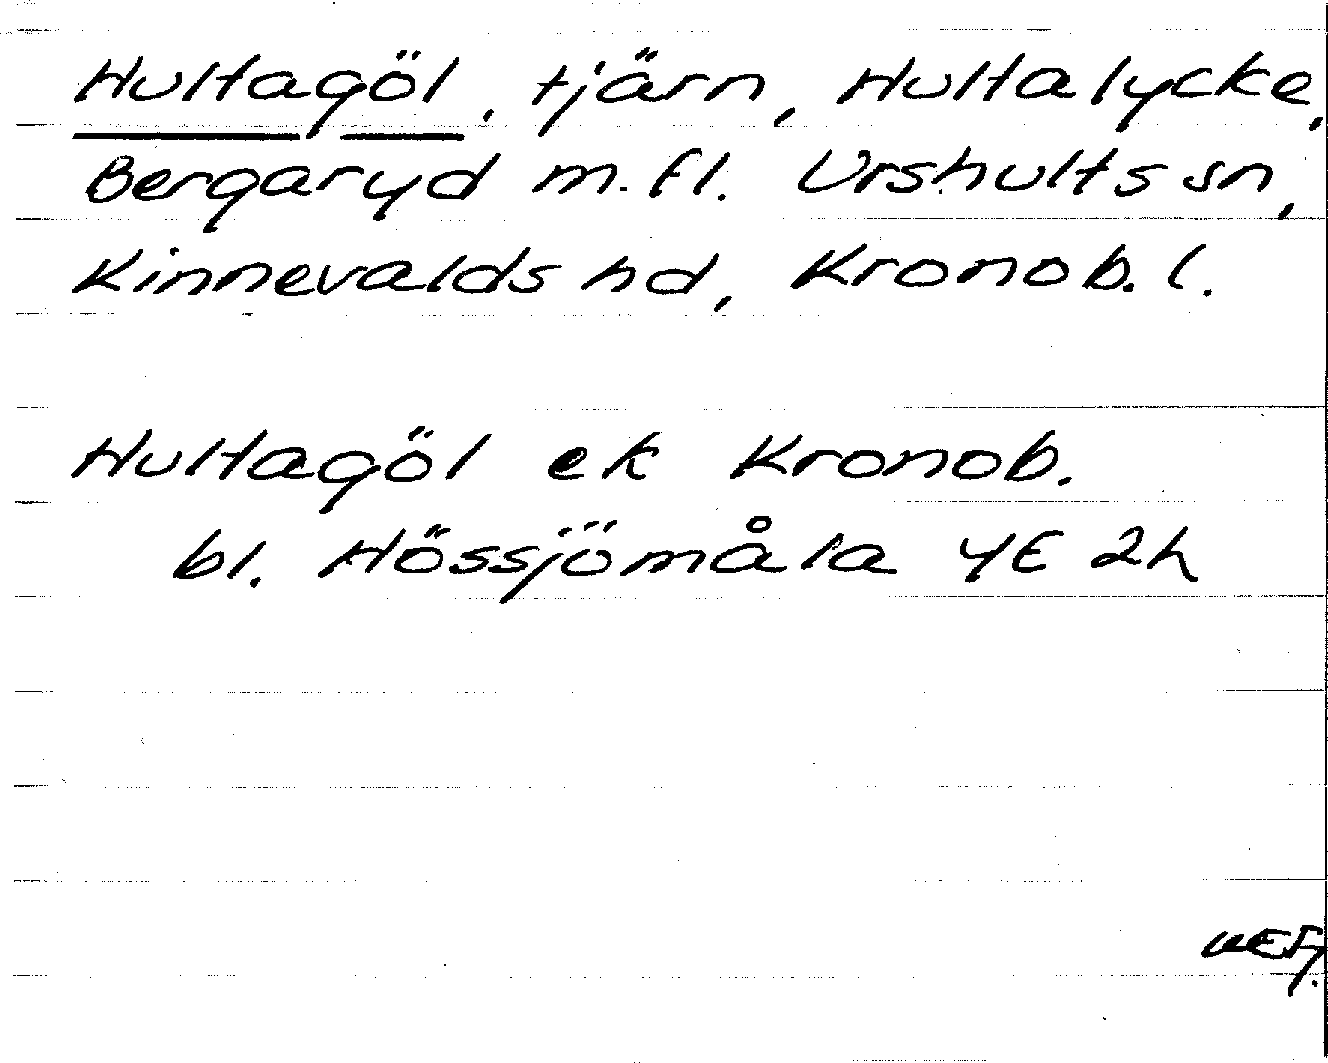 Hultagöl, tjärn, Hultalycke,
Bergaryd m.fl. Urshults sn,
Kinnevalds hd, Kronob. l.
Hultagöl ek Kronob.
bl. Hössjömåla 4E 2h